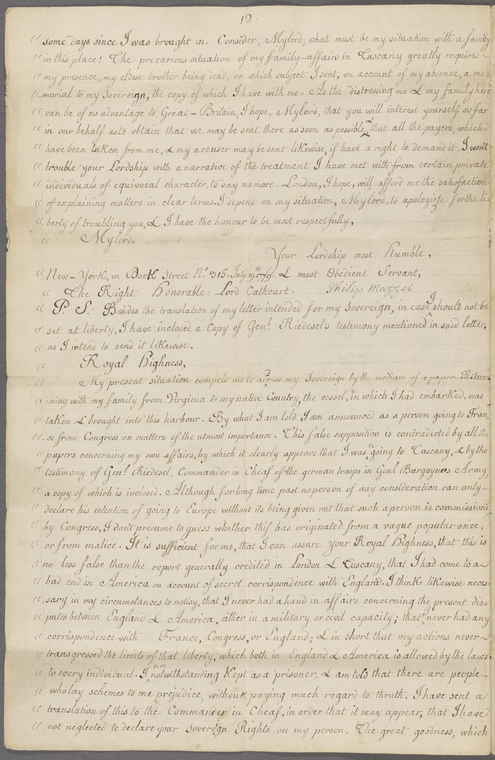 12.
" some days since I was brought in. Consider, Mylord, what must be my situation with a family
" in this place! The precarious situation of my family-affairs in Tuscany greatly requires
" my presence, my eldest brother being dead, on which subject I sent, on account of my absence, a me-
" morial to my Sovereign, the copy of which I have with me. As the distressing me & my family here
" can be of no advantage to Great-Britain, I hope, Mylord, that you will interest yourself so far
" in our behalf as to obtain that we may be sent there as soon as possible, & that all the papers, which
" have been taken from me, & my accuser may be sent likewise, if have a right to demand it. I won't
" trouble your Lordship with a narrative of the treatment I have met with from certain private
" individuals of equivocal character, to say no more. London, I hope, will afford me the satisfaction
" of explaining matters in clear terms. I depend on my situation, Mylord, to apologise for the li-
" berty of troubling you, & I have the honour to be most respectfully,
" Mylord,
Your Lordship most humble,
" New-York, in Dock Street No. 215. July 19th 1779. & most Obedient Servant,
" The Right Honorable Lord Cathcart. Philip Mazzei
" P. S. Besides the translation of my letter intended for my Sovereign, in case I should not be
" set at liberty, I have inclosed a Copy of Genl. Riedesel's testimony mentioned in said letter,
" as I intend to send it likewise.
" Royal Highness,
" My present situation compels me to adress my Sovereign by the medium of a paper. Return-
" ning with my family from Virginia to my native Country, the vessel, in which I had embarked, was
" taken & brought into this harbour. By what I am told I am announced as a person going to Fran-
" ce from Congress on matters of the utmost importance. This false supposition is contradicted by all the
" papers concerning my own affairs, by which it clearly appears that I was going to Tuscany, & by the
" testimony of Genl. Riedesel, Commander in Cheaf of the german troops in Genl. Burgoyne's Army,
" a copy of which is inclosed. Although for long time past no person of any consideration can only
" declare his intention of going to Europe without its being given out that such a person is commissioned
" by Congress, I don't presume to guess whether this has originated from a vague popular voice,
" or from malice. It is sufficient for me, that I can assure your Royal Highness, that this is
" no less false than the report generally credited in London & Tuscany, that I had come to a
" bad end in America on account of secret correspondence with England. I think likewise neces-
" sary in my circumstances to notisy, that I never had a hand in affairs concerning the present dis-
" putes between England & America, either in a military or civil capacity; that I never had any
" correspondence with France, Congress, or England; & in short that my actions never
" transgressed the limits of that liberty, which both in England & America is allowed by the laws
" to every individual. I, notwithstanding Kept as a prisoner, & am told that there are people
" who lay schemes to me prejudice, without paying much regard to thruth. I have sent a
" translation of this to the Commander in Cheaf, in order that it may appear, that I have
" not neglected to declare your Sovereign Rights on my person. The great goodness, which